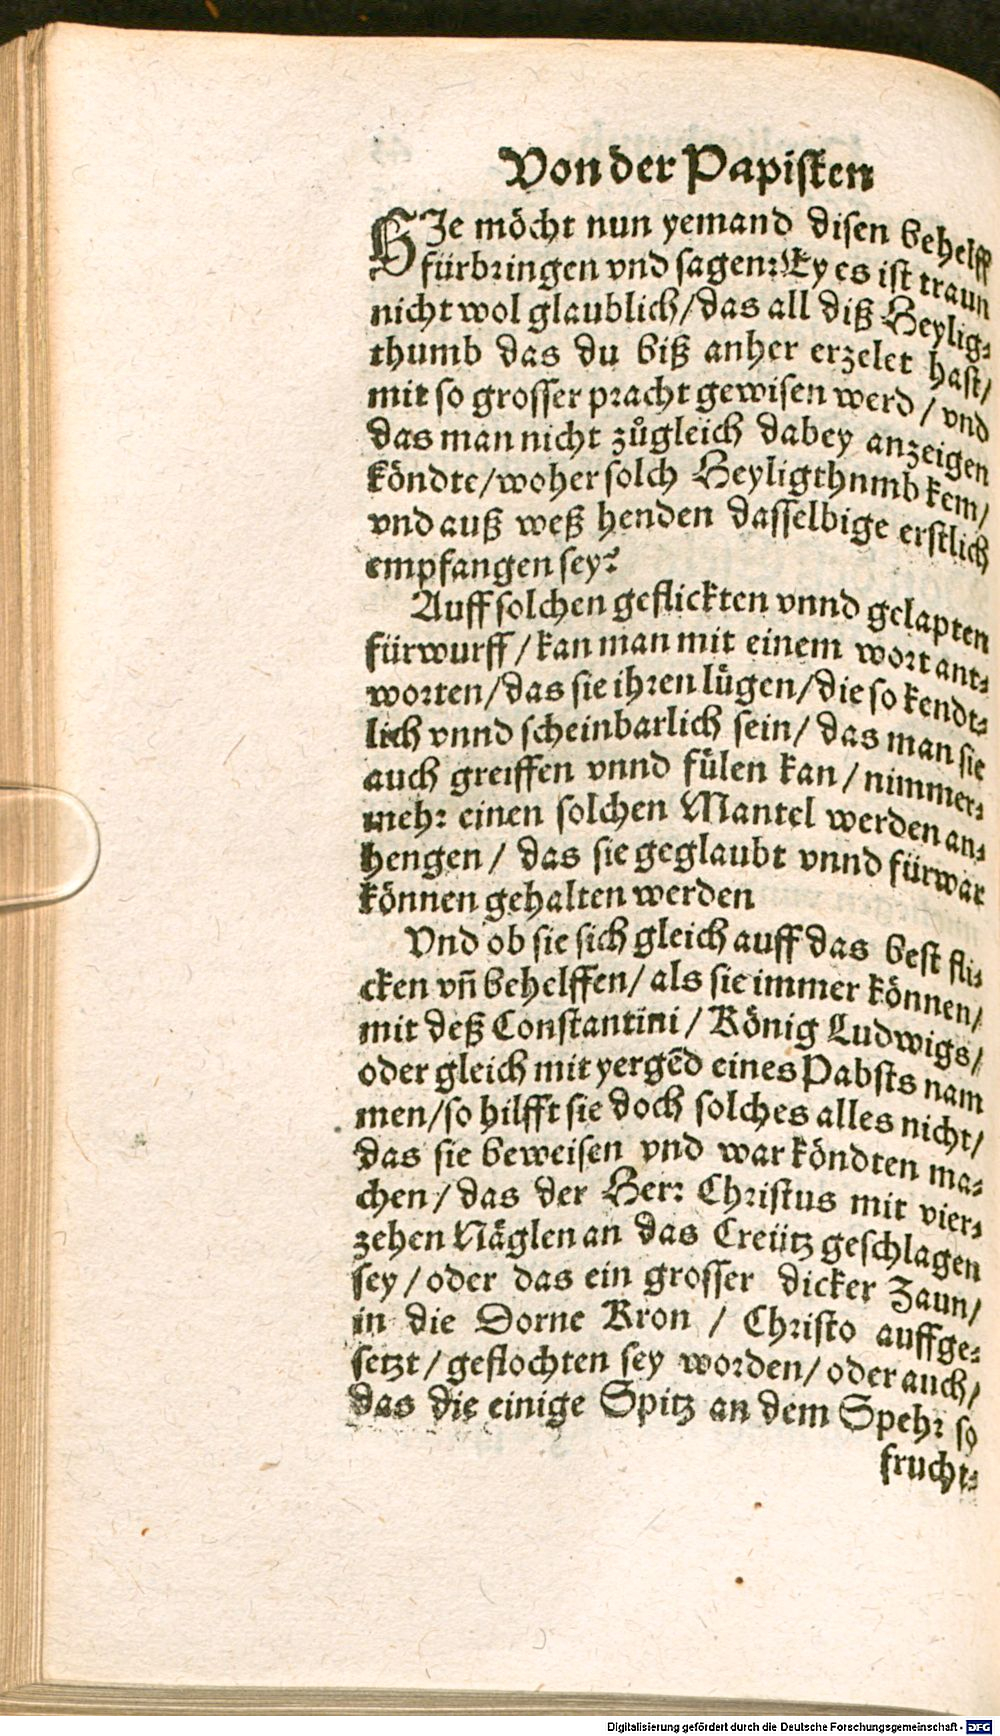 Von der Papisten
HJe möcht nun yemand disen behelff
fürbringen vnd sagen: Ey es ist traun
nicht wol glaublich/das all diß Heylig-
thumb das du biß anher erzelet hast/
mit so grosser pracht gewisen werd/vnd
das man nicht zůgleich dabey anzeigen
köndte/woher solch Heyligthnmb kem/
vnd auß weß henden dasselbige erstlich
empfangen sey?
Auff solchen geflickten vnnd gelapten
fürwurff/kan man mit einem wort ant-
worten/das sie ihren lügen/die so kendt-
lich vnnd scheinbarlich sein/das man sie
auch greiffen vnnd fülen kan/nimmer-
mehr einen solchen Mantel werden an-
hengen/das sie geglaubt vnnd fürwar
können gehalten werden
Vnd ob sie sich gleich auff das best fli-
cken vñ behelffen/als sie immer können/
mit deß Constantini/König Ludwigs/
oder gleich mit yergēd eines Pabsts nam
men/so hilfft sie doch solches alles nicht/
das sie beweisen vnd war köndten ma-
chen/das der Herr Christus mit vier-
zehen Näglen an das Creütz geschlagen
sey/oder das ein grosser dicker Zaun/
in die Dorne Kron / Christo auffge-
setzt/geflochten sey worden/oder auch/
das die einige Spitz an dem Spehr so
frucht-
Digitalisierung gefördert durch die Deutsche Forschungsgemeinschaft - DFG